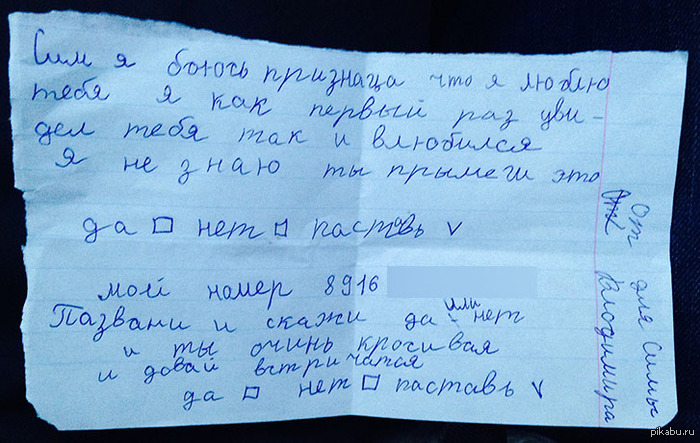 Сим я боюсь признаца что я люблю
тебя я как первый раз уви-
дел тебя так и влюбился
я не знаю ты прымеш это
да □ нет □ паставь v
мой номер 8916
Пазвани и скажи да или нет
и ты очинь кросивая
и довай встричатся
да □ нет □ паставь v
От для Симы
Валодимира
pikabu.ru